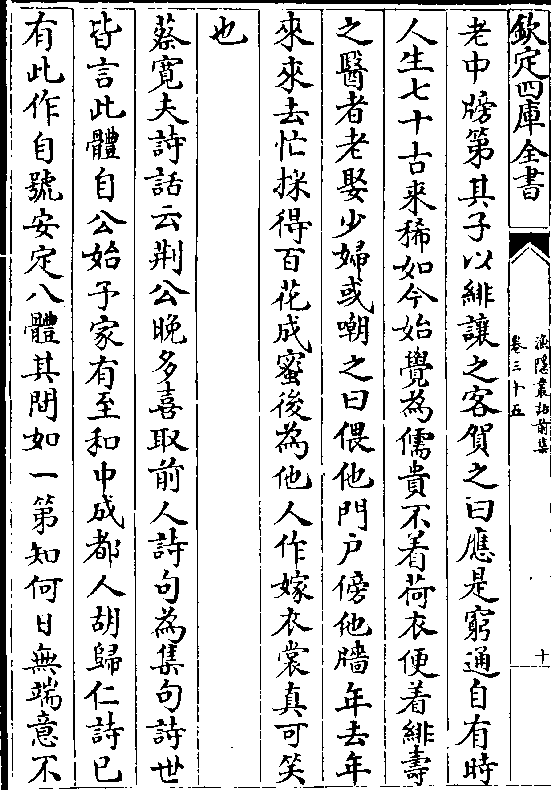 欽定四庫全書
漁隱叢話前集
卷三十五
十
老中牓第其子以緋讓之客賀之曰應是窮通自有時
人生七十古來稀如今始覺為儒貴不着荷衣便着緋壽
之醫者老娶少婦或嘲之曰偎他門戶傍他牆年去年
來來去忙採得百花成蜜後為他人作嫁衣裳真可笑
也
蔡寬夫詩話云荆公晚多喜取前人詩句為集句詩世
皆言此體自公始予家有至和中成都人胡歸仁詩已
有此作自號安定八體其間如一第知何日無端意不